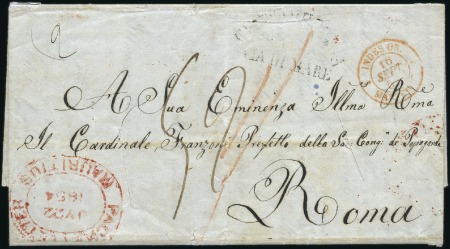 VIA DI MARE
INDES OR.
16
SEPT
A Sua Eminenza Illma Rma
Il Cardinale Franzoni Prefetto della Sa Cong. de Propaganda
Roma
MAURITIUS
1854